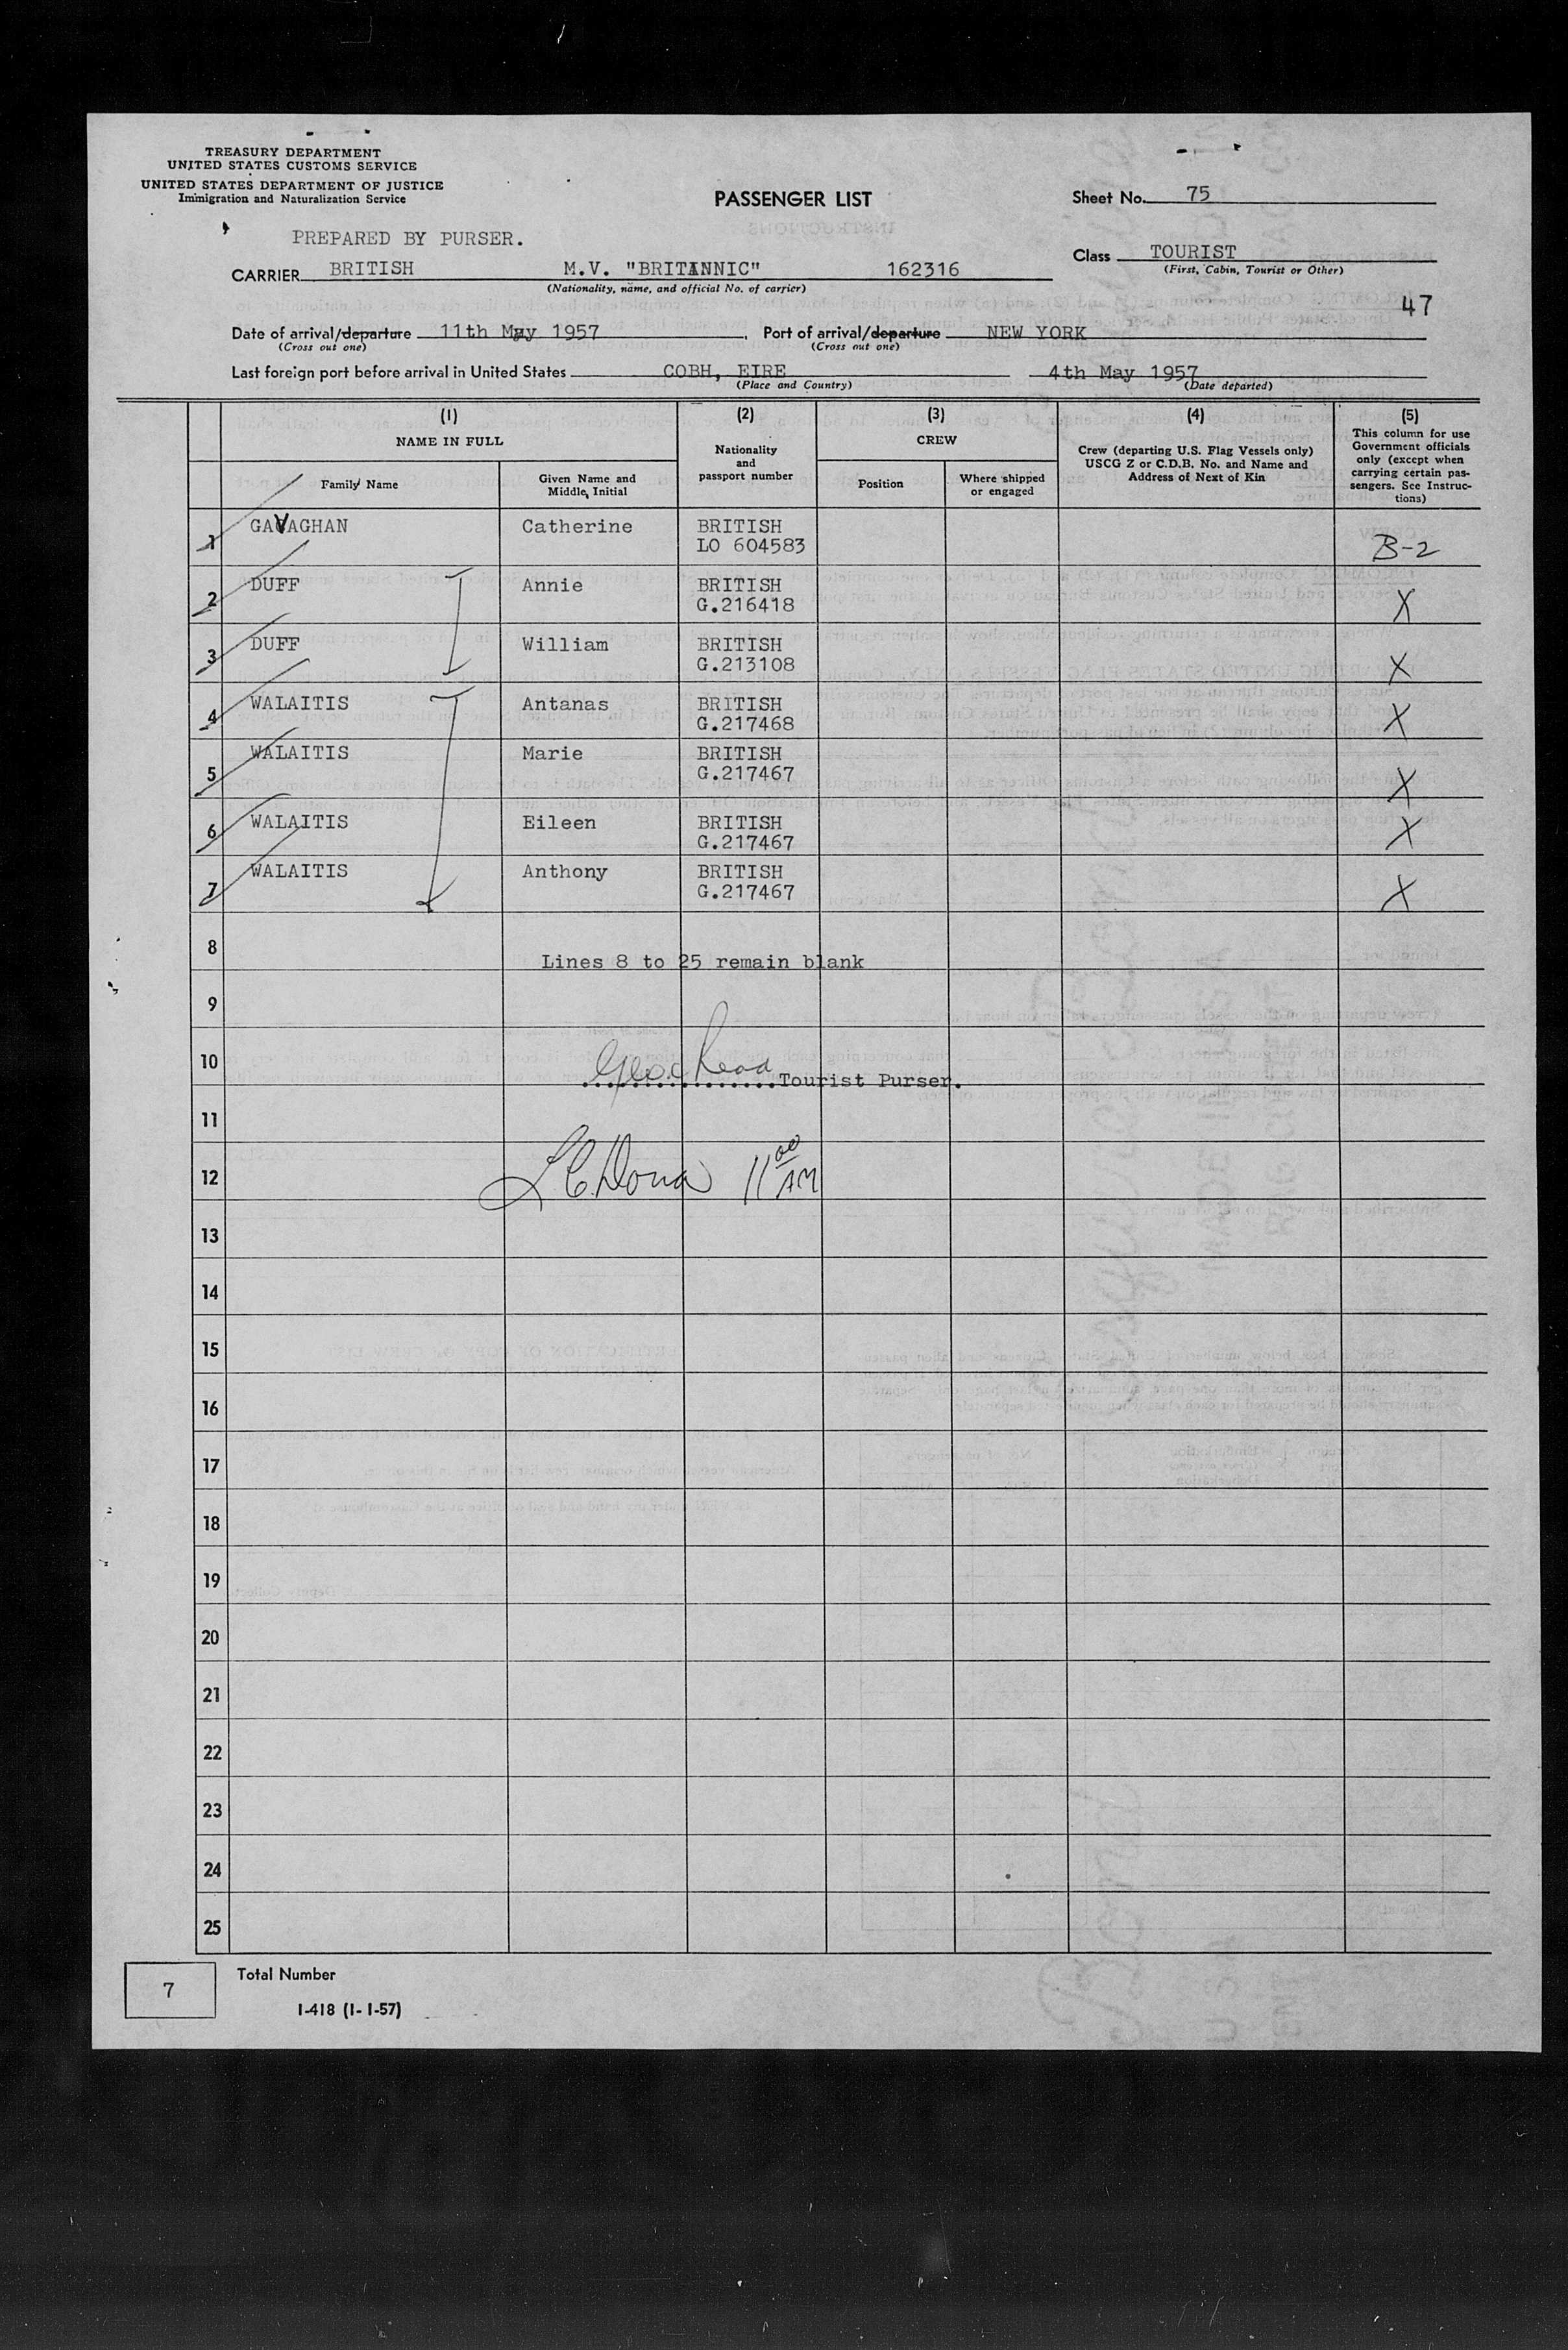 TREASURY DEPARTMENT
UNITED STATES CUSTOMS SERVICE
UNITED STATES DEPARTMENT OF JUSTICE
Immigration and Naturalization Service
PASSENGER LIST
Sheet No. 75
PREPARED BY PURSER.
CARRIER BRITISH M.V. "BRITANNIC" 162316
(Nationality, name, and official No. of carrier)
Class TOURIST
(First, Cabin, Tourist or Other)
47
Date of arrival/departure 11th May 1957, Port of arrival/departure NEW YORK
(Cross out one) (Cross out one)
Last foreign port before arrival in United States COBH, EIRE 4th May 1957
(Place and Country) (Date departed)
(1) NAME IN FULL
Family Name
Given Name and Middle Initial
(2) Nationality and passport number
(3) CREW
Position
Where shipped or engaged
(4) Crew (departing U.S. Flag Vessels only) USCG Z or C.D.B. No. and Name and Address of Next of Kin
(5) This column for use Government officials only (except when carrying certain passengers. See Instructions)
1 GAVAGHAN Catherine BRITISH LO 604583 B-2
2 DUFF Annie BRITISH G.216418 X
3 DUFF William BRITISH G.213108 X
4 WALAITIS Antanas BRITISH G.217468 X
5 WALAITIS Marie BRITISH G.217467 X
6 WALAITIS Eileen BRITISH G.217467 X
7 WALAITIS Anthony BRITISH G.217467 X
8 Lines 8 to 25 remain blank
9
10 Tourist Purser.
11
12 11 00 AM
13
14
15
16
17
18
19
20
21
22
23
24
25
7 Total Number
I-418 (1-1-57)